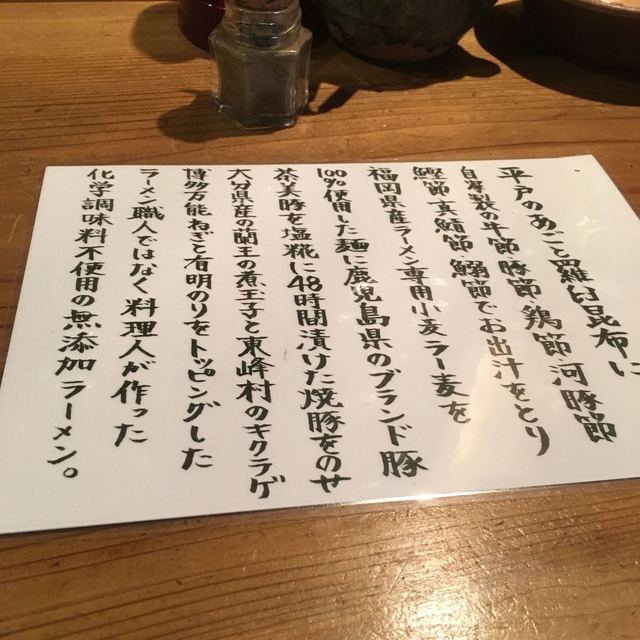 平戸のあごと羅臼昆布に
自家製の牛節・豚節・鶏節・河豚節
鰹節・真鯖節・鰯節でお出汁をとり
福岡県産ラーメン専用小麦ラー麦を
100%使用した麺に鹿児島県のブランド豚
茶美豚を塩糀に48時間漬けた焼豚をのせ
大分県産の蘭王の煮玉子と東峰村のキクラゲ
博多万能ねぎと有明のりをトッピングした
ラーメン職人ではなく料理人が作った
化学調味料不使用の無添加ラーメン。